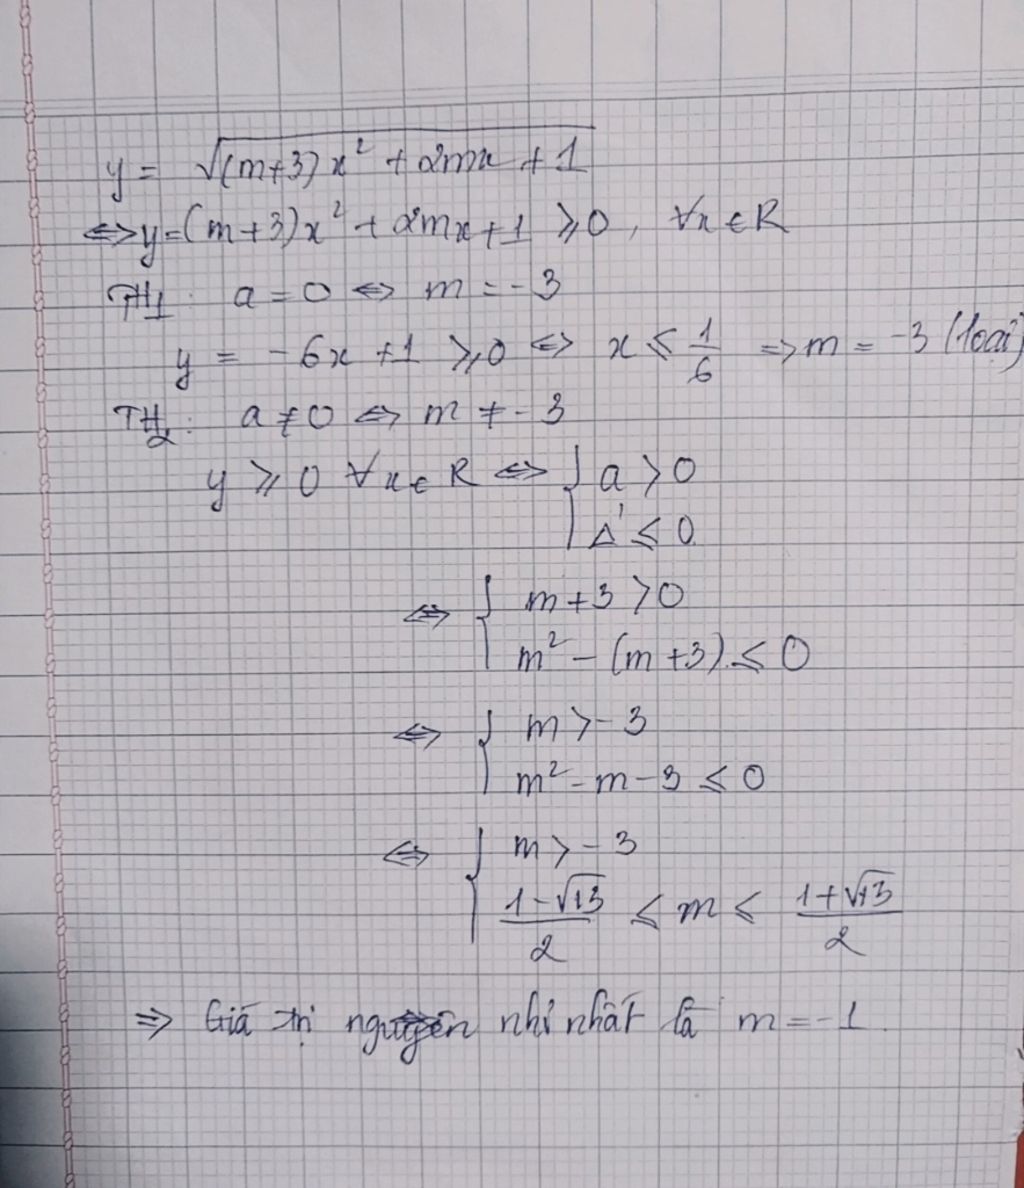 y = √((m+3)x² + 2mx + 1)
⇔ y = (m+3)x² + 2mx + 1 ⩾ 0, ∀x ∈ R
TH1: a = 0 ⇔ m = -3
y = -6x + 1 ⩾ 0 ⇔ x ⩽ 1/6 ⇒ m = -3 (loại)
TH2: a ≠ 0 ⇔ m ≠ -3
y ⩾ 0 ∀x ∈ R ⇔ { a > 0
Δ' ⩽ 0
⇔ { m + 3 > 0
m² - (m+3) ⩽ 0
⇔ { m > -3
m² - m - 3 ⩽ 0
⇔ { m > -3
(1-√13)/2 ⩽ m ⩽ (1+√13)/2
⇒ Giá trị nguyên nhỏ nhất là m = -1.